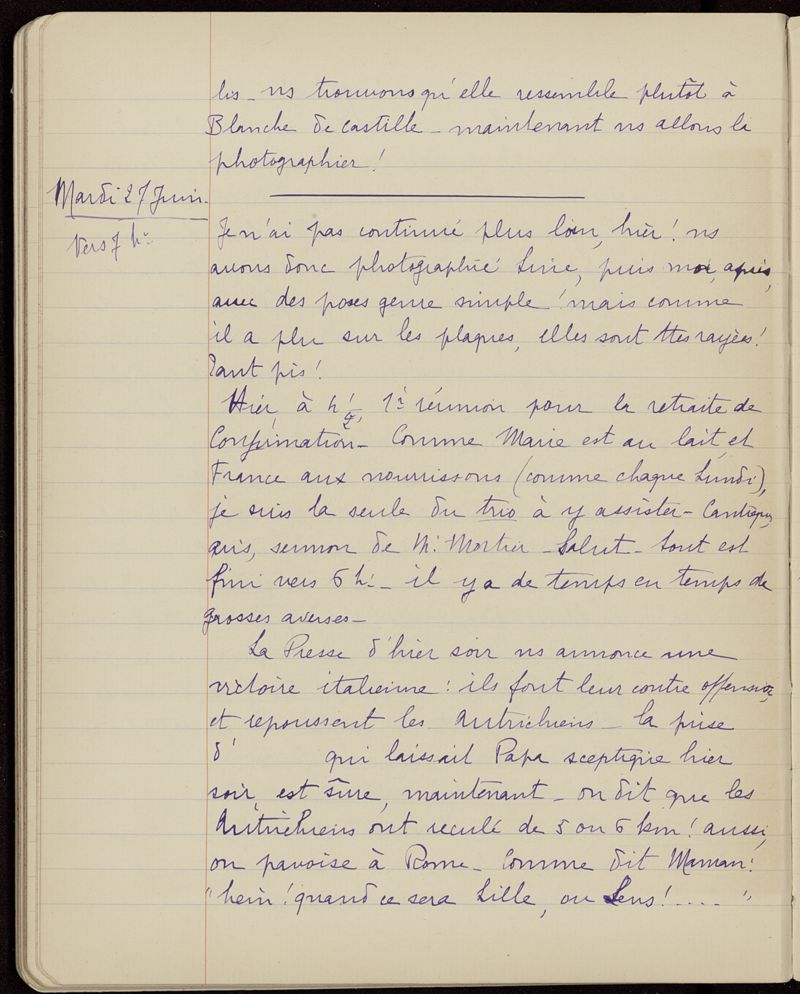 lis _ ns trouvons qu'elle ressemble plutôt à
Blanche de Castille _ maintenant ns allons la
photographier !
Mardi 27 Juin.
Vers 7 h.
Je n'ai pas continué plus loin, hier ! ns
avons donc photographié Line, puis moi, après,
avec des poses genre simple ! mais comme
il a plu sur les plaques, elles sont ttes rayées !
Tant pis !
Hier, à 4 h 1/2, 1è réunion pour la retraite de
Confirmation _ Comme Marie est au lait, et
France aux nourrissons (comme chaque Lundi),
je suis la seule du trio à y assister _
avis, sermon de M. Mortier _ Salut _ tout est
fini vers 6 h. _ il y a de temps en temps de
grosses averses _
La Presse d'hier soir ns annonce une
victoire italienne : ils font leur contre offensive,
et repoussent les Autrichiens _ la prise
d' qui laissait Papa sceptique hier
soir, est sûre, maintenant _ on dit que les
Autrichiens ont reculé de 5 ou 6 km ! aussi,
on pavoise à Rome _ Comme dit Maman :
"hein ! quand ce sera Lille, ou Lens ! .... "